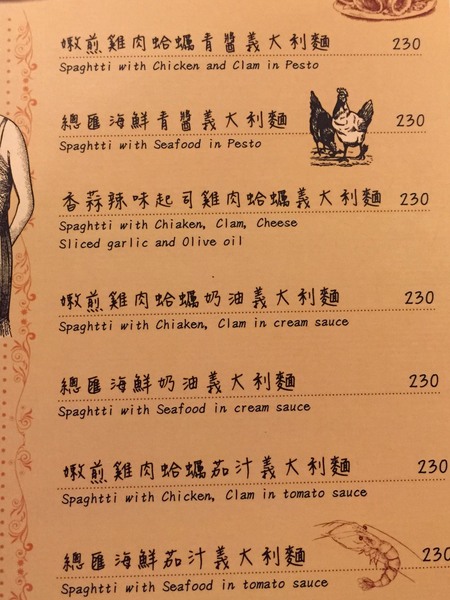 嫩煎雞肉蛤蠣青醬義大利麵 230
Spaghtti with Chicken and Clam in Pesto
總匯海鮮青醬義大利麵 230
Spaghtti with Seafood in Pesto
香蒜辣味起司雞肉蛤蠣義大利麵 230
Spaghtti with Chiaken, Clam, Cheese
Sliced garlic and Olive oil
嫩煎雞肉蛤蠣奶油義大利麵 230
Spaghtti with Chiaken, Clam in cream sauce
總匯海鮮奶油義大利麵 230
Spaghtti with Seafood in cream sauce
嫩煎雞肉蛤蠣茄汁義大利麵 230
Spaghtti with Chicken, Clam in tomato sauce
總匯海鮮茄汁義大利麵 230
Spaghtti with Seafood in tomato sauce